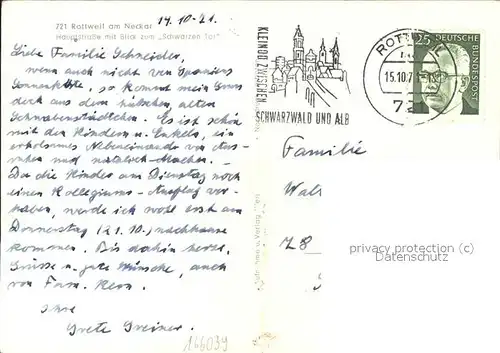 721 Rottweil am Neckar
Hauptstraße mit Blick zum „Schwarzen Tor"
14.10.71.
Liebe Familie Schneider,
wenn auch nicht von Spaniens
Sonnenküste, so kommt mein Gruss
doch aus dem hübschen, alten
Schwabenstädtchen. Es ist schön
mit den Kindern u. Enkeln, ein
erholsames Nebeneinander von Aus-
ruhen und
Da die Kinder am Dienstag noch
einen Kollegiums-Ausflug vor-
haben, werde ich wohl erst am
Donnerstag (21.10.) nachhause
kommen. Bis dahin herzl.
Grüsse u. gute Wünsche, auch
von Fam. Kern.
Ihre
Grete Greiner
146039
KLEINOD ZWISCHEN
SCHWARZWALD UND ALB
ROTTWEIL
15.10.71
72
25
DEUTSCHE
BUNDESPOST
Familie
Wal
78
privacy protection (c)
Datenschutz